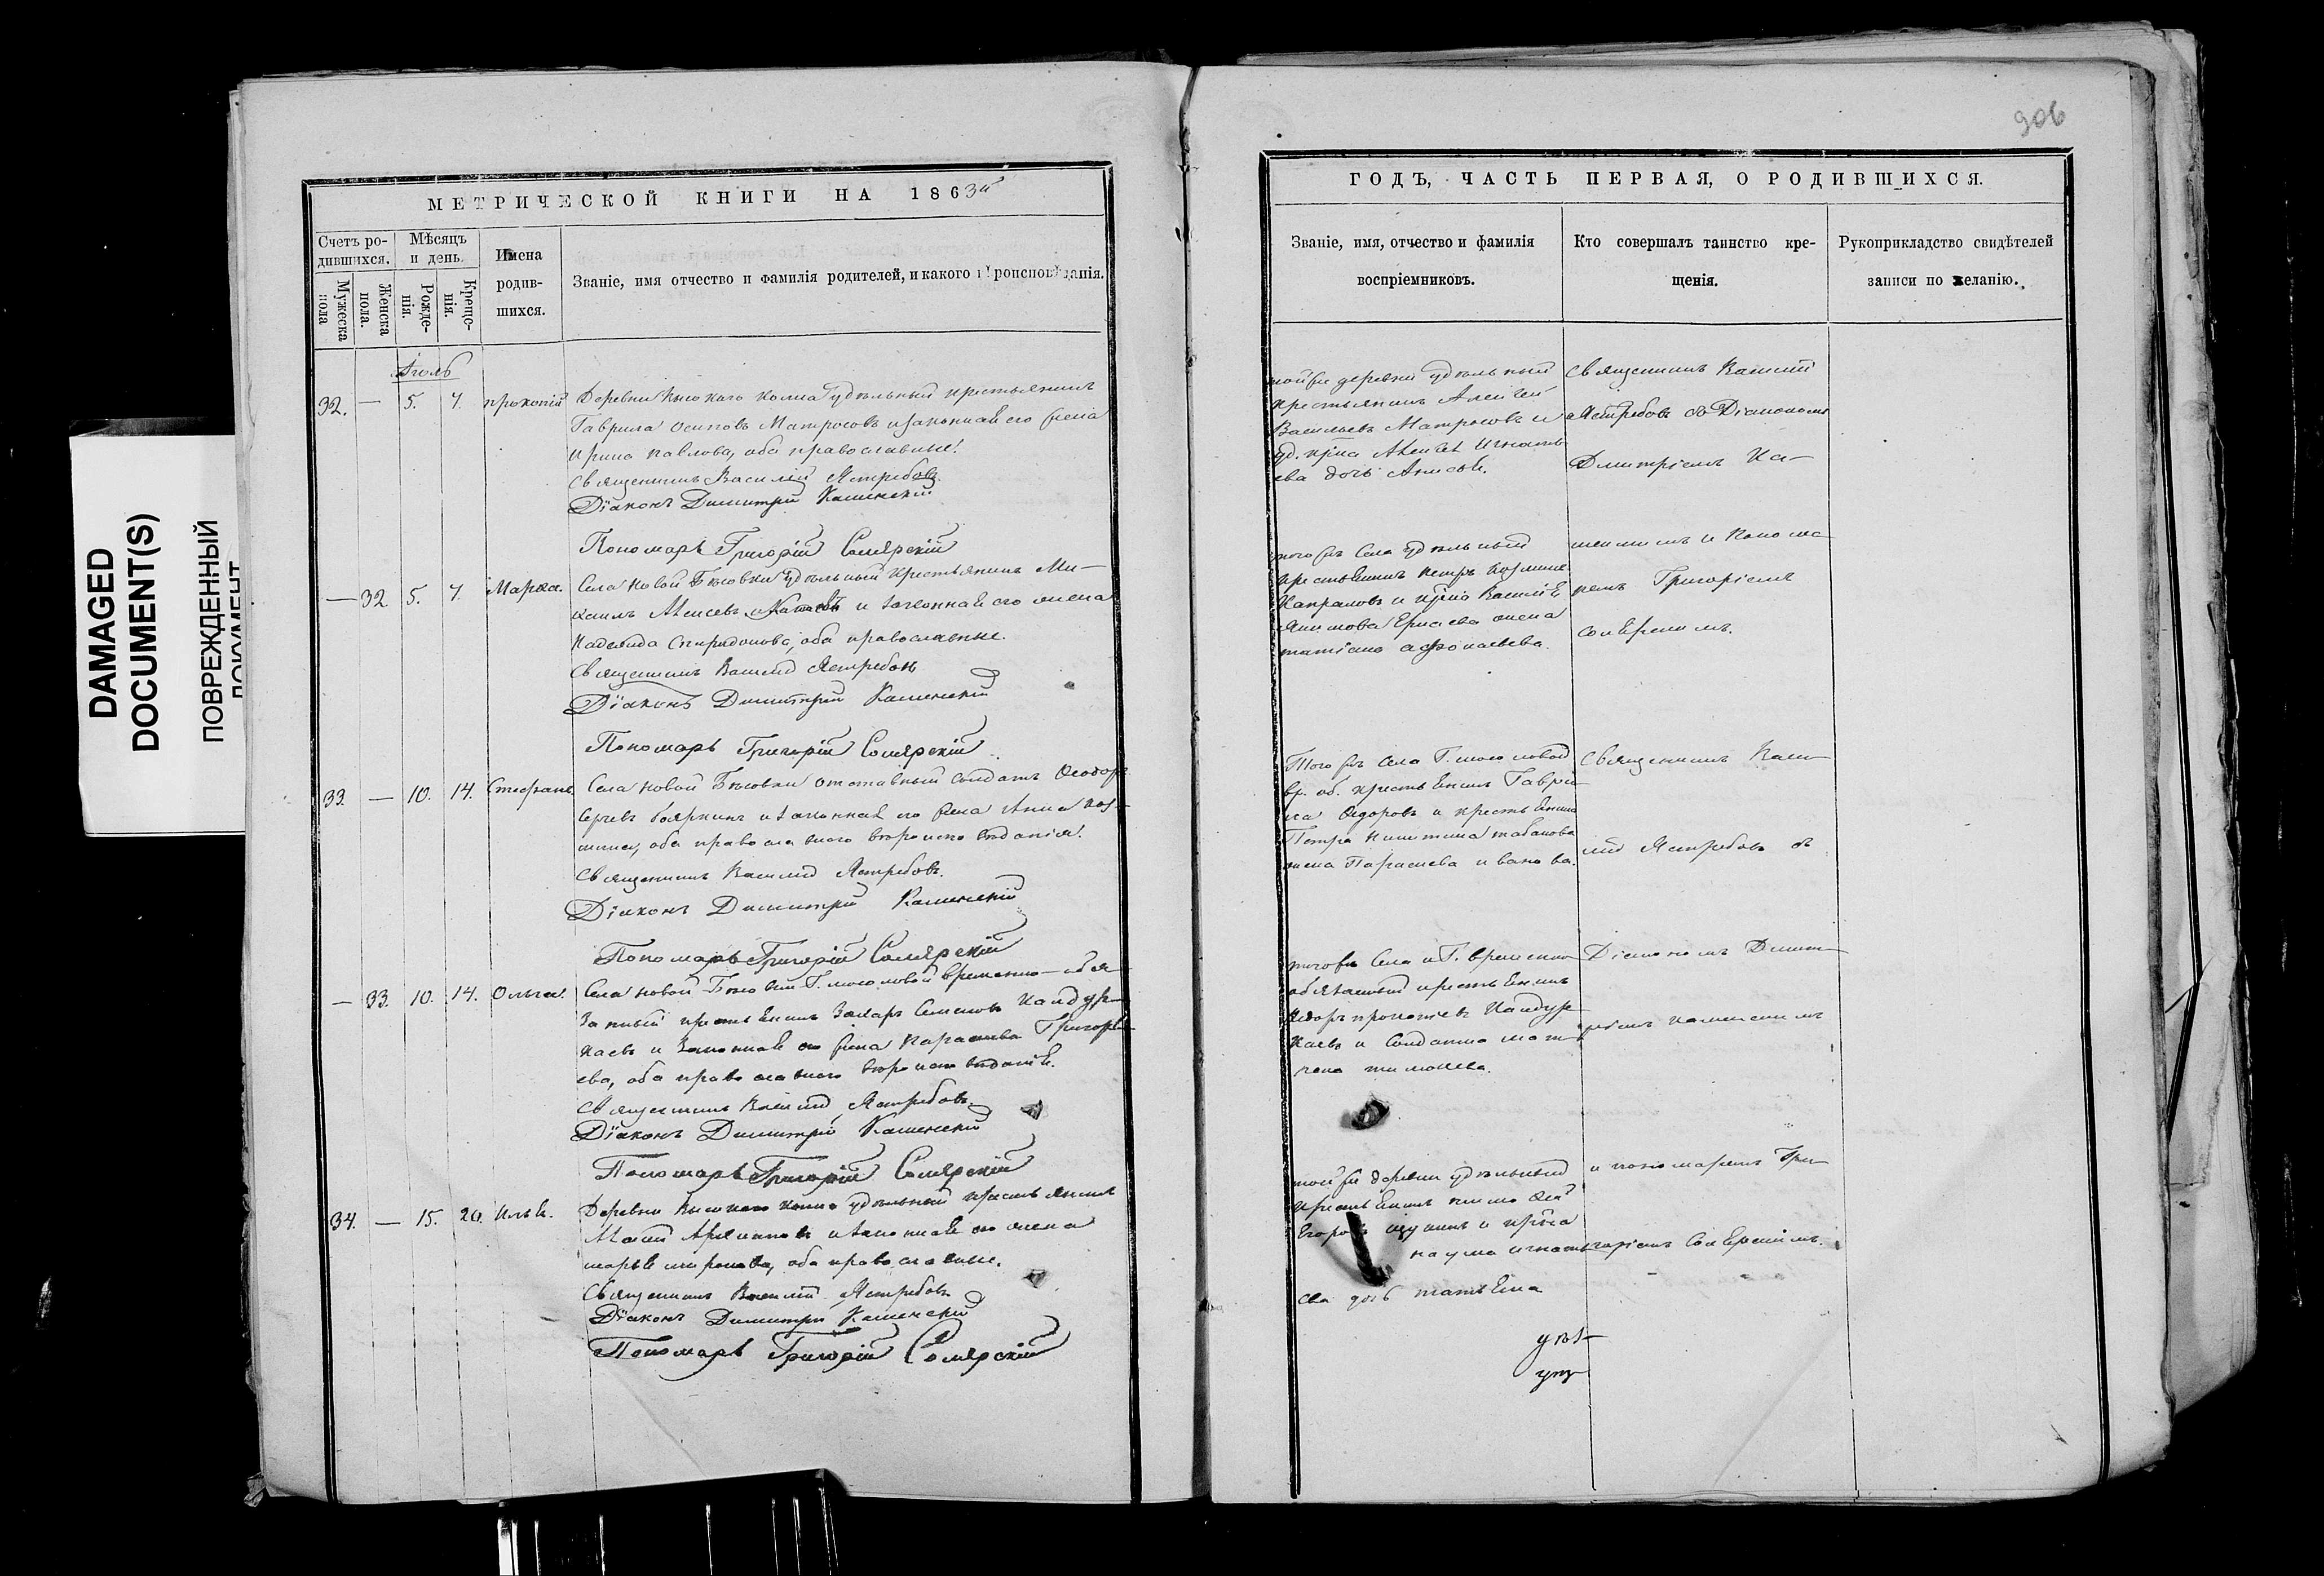 DAMAGED
DOCUMENT(S)
ПОВРЕЖДЕННЫЙ
ДОКУМЕНТ
МЕТРИЧЕСКОЙ КНИГИ НА 1863й
Счетъ ро-
дившихся.
Мѣсяцъ
и день.
Имена
родив-
шихся.
Званіе, имя отчество и фамилія родителей, и какого вѣроисповѣданія.
Мужеска
пола
Женска
пола.
Рожде-
нія.
Креще-
нія.
Іюль
32. — 5. 7. Прокопій Деревни Высокаго Колка удѣльный крестьянинъ
Гаврила Осиповъ Матросовъ и законная его жена
Ирина Павлова, оба православные.
Священникъ Василій Ястребовъ.
Діаконъ Димитрій Каменскій
Пономарь Григорій Солярскій
— 32 5. 7. Марѳа. Села Новой Бѣсовки удѣльный крестьянинъ Ми-
хаилъ Алексѣевъ и законная его жена
Надежда Спиридонова, оба православные.
Священникъ Василій Ястребовъ
Діаконъ Димитрій Каменскій
Пономарь Григорій Солярскій
33. — 10. 14. Стефанъ. Села Новой Бѣсовки отставный солдатъ Ѳеодоръ
Бояркинъ и законная его жена Анна Коз-
мина, оба православнаго вѣроисповѣданія.
Священникъ Василій Ястребовъ.
Діаконъ Димитрій Каменскій
Пономарь Григорій Солярскій
— 33. 10. 14. Ольга. Села Новой Бѣсовки Г. временно-обя-
занный крестьянинъ Захаръ Семеновъ Кандур-
каевъ и законная его жена Параскева Григорь-
ева, оба православнаго вѣроисповѣданія.
Священникъ Василій Ястребовъ.
Діаконъ Димитрій Каменскій
Пономарь Григорій Солярскій
34. — 15. 20. Илья. Деревни Высокаго Колка удѣльный крестьянинъ
и законная его жена
Марья Миронова, оба православные.
Священникъ Василій Ястребовъ
Діаконъ Димитрій Каменскій
Пономарь Григорій Солярскій
906
ГОДЪ, ЧАСТЬ ПЕРВАЯ, О РОДИВШИХСЯ.
Званіе, имя, отчество и фамилія
воспріемниковъ.
Кто совершалъ таинство кре-
щенія.
Рукоприкладство свидѣтелей
записи по желанію.
той же деревни удѣльный
крестьянинъ Алексѣй
Васильевъ Матросовъ и
уд. кр-на Алексѣя Игнать-
ева дочь Анисья.
Священникъ Василій
Ястребовъ съ Діакономъ
Димитріемъ Ка-
того же села удѣльный
крестьянинъ Петръ Козминъ
Капраловъ и кр-на Василія
Акимова жена
Татіана Аѳонасьева.
менскимъ и Понома-
ремъ Григоріемъ
Солярскимъ.
Того же села Г.
вр. об. крестьянинъ Гаврі-
ла Ѳедоровъ и крестьянина
Петра Никитина Табакова
жена Параскева Иванова.
Священникъ Васи-
лій Ястребовъ съ
того же села и Г. временно
обязанный крестьянинъ
Ѳедоръ Прокопіевъ Кандур-
каевъ и солдатка Мат-
рена Тимоѳеева.
Діакономъ Димит-
ріемъ Каменскимъ
той же деревни удѣльный
крестьянинъ Тимоѳей
Егоровъ и кр-на
Наума Игнать-
ева дочь Татьяна
и пономаремъ Гри-
горіемъ Солярскимъ.